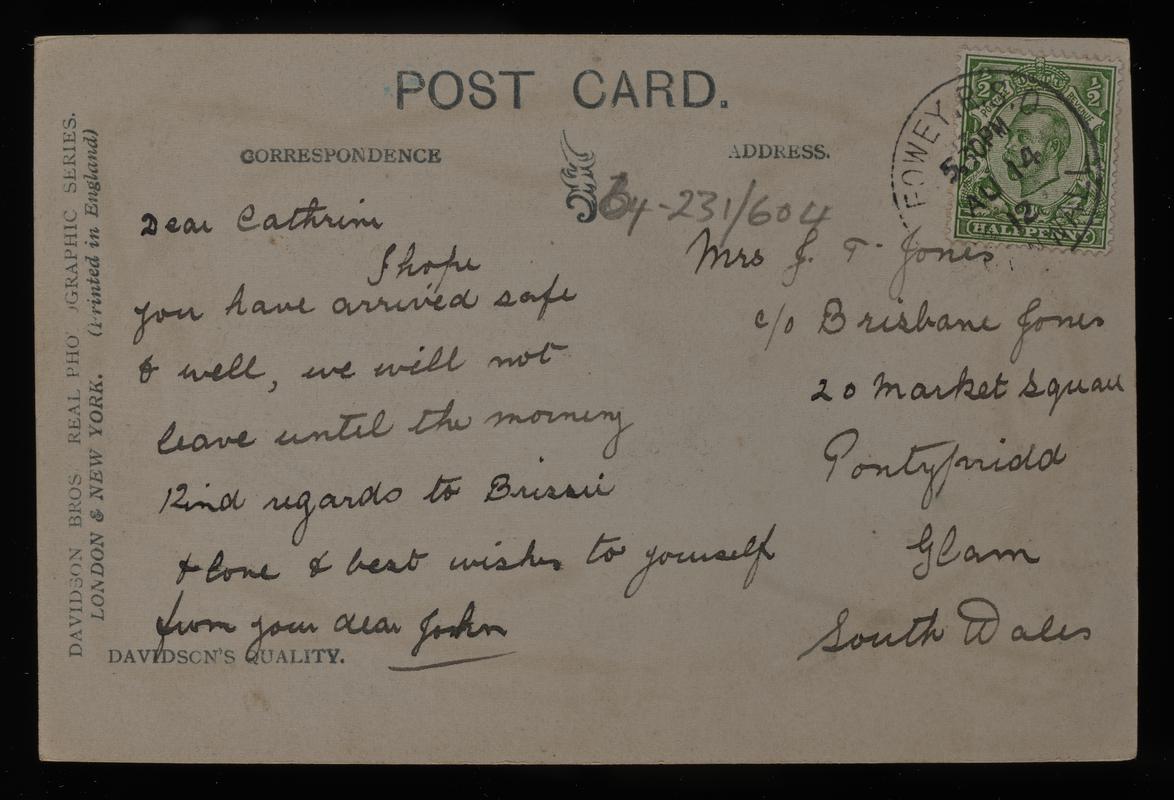 POST CARD.
CORRESPONDENCE
ADDRESS.
64-231/604
Dear Cathrine
I hope
you have arrived safe
& well, we will not
leave until the morning
Kind regards to Brissie
& love & best wishes to yourself
from your dear John
DAVIDSON'S QUALITY.
Mrs J. T. Jones
c/o Brisbane Jones
20 Market Square
Pontypridd
Glam
South Wales
DAVIDSON BROS. REAL PHOTOGRAPHIC SERIES.
LONDON & NEW YORK. (Printed in England)
FOWEY
5.30PM
AU 14
12
1/2 1/2
POSTAGE REVENUE
HALFPENNY